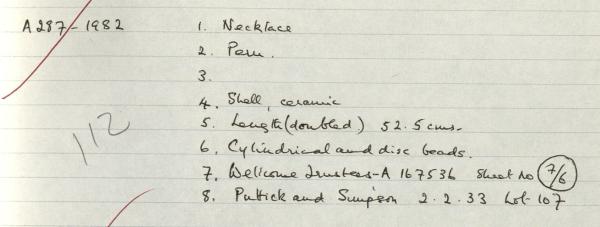 A287-1982 1. Necklace
2. Peru.
3.
4. Shell, ceramic
5. Length (doubled) 52.5 cms.
112
6. Cylindrical and disc beads.
7. Wellcome Trustees-A 167536 Sheet no 7/6
8. Puttick and Simpson 2.2.33 Lot-107